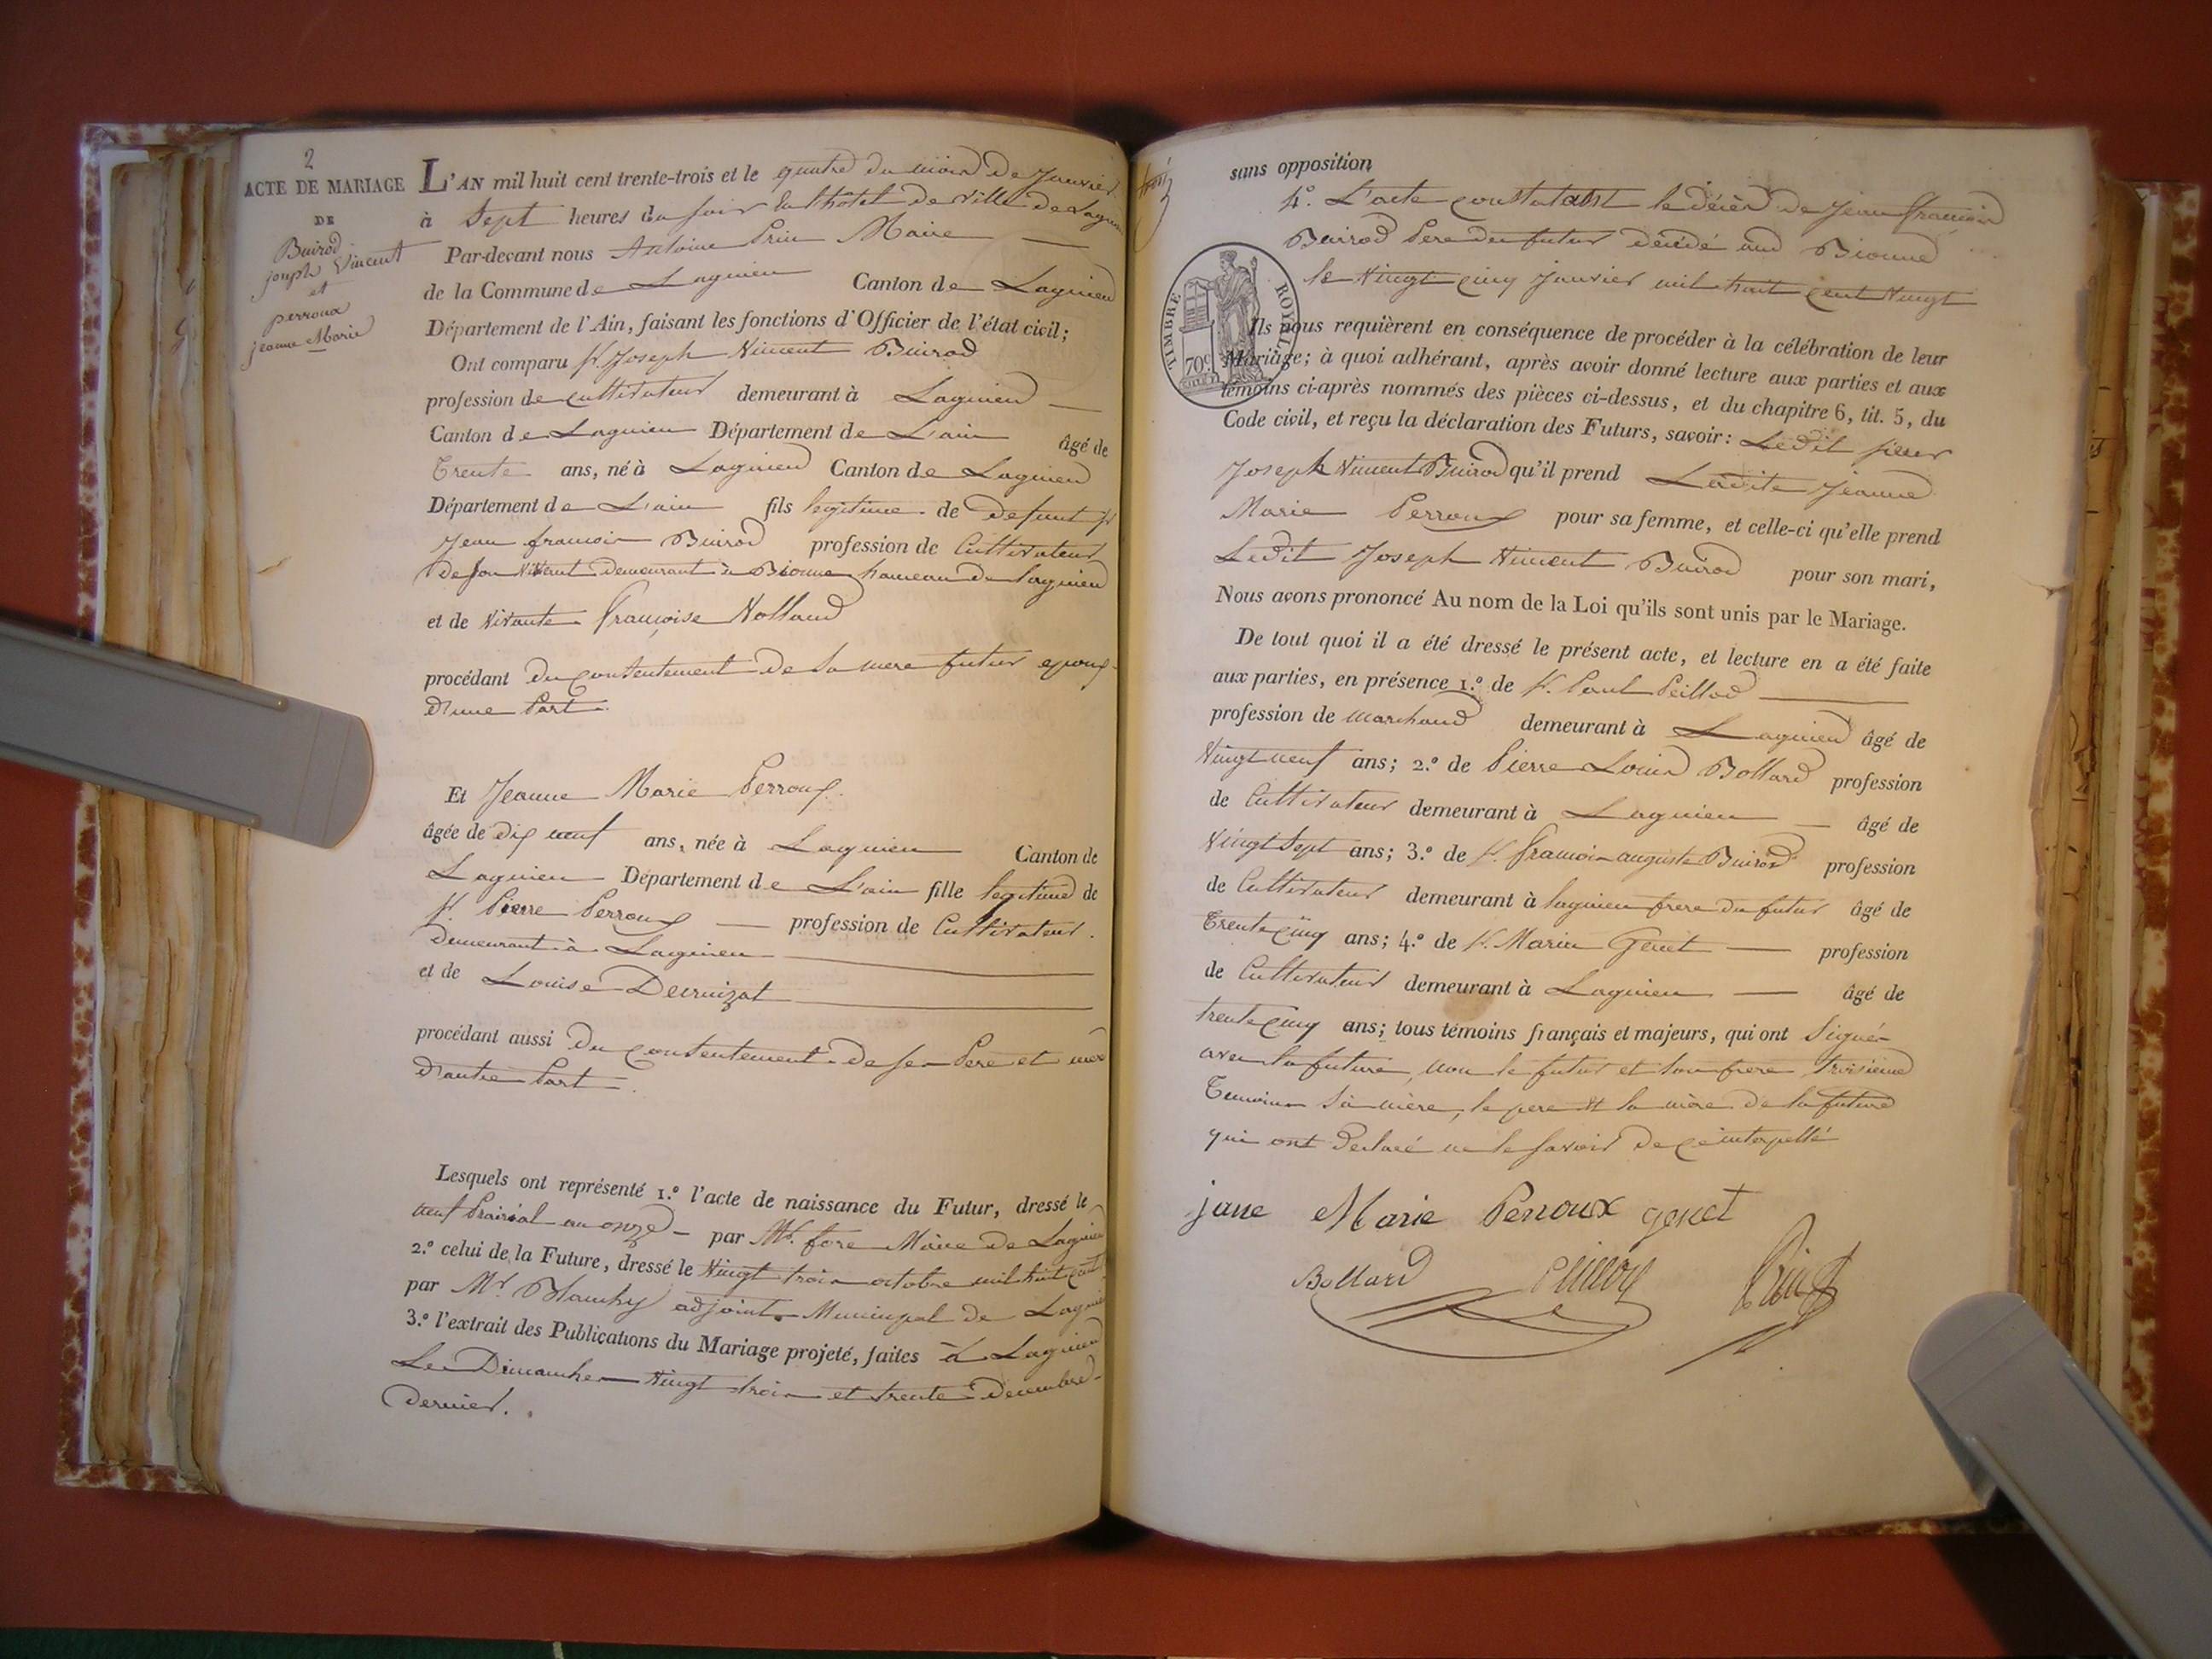 2
ACTE DE MARIAGE
DE
Buirod
joseph Vincent
et
perroux
jeanne Marie
L'AN mil huit cent trente-trois et le quatre du mois de Janvier
à Sept heures du soir à l'hôtel de Ville de Lagnieu
Par-devant nous Antoine Prin Maire
de la Commune de Lagnieu Canton de Lagnieu
Département de l'Ain, faisant les fonctions d'Officier de l'état civil;
Ont comparu Sr. Joseph Vincent Buirod
profession de cultivateur demeurant à Lagnieu
Canton de Lagnieu Département de L'ain âgé de
Trente ans, né à Lagnieu Canton de Lagnieu
Département de L'ain fils legitime de defunt Sr
Jean francois Buirod profession de Cultivateur
de son Vivant demeurant à Bionne hameau de lagnieu
et de Vivante Françoise Volland
procédant du consentement de sa mere futur epoux
d'une Part.
Et Jeanne Marie Perroux
âgée de dix neuf ans, née à Lagnieu Canton de
Lagnieu Département de L'ain fille legitime de
Sr. Pierre Perroux profession de Cultivateur.
demeurant à Lagnieu
et de Louise Decruizat
procédant aussi du consentement de ses Pere et mere
d'autre Part.
Lesquels ont représenté 1.º l'acte de naissance du Futur, dressé le
neuf Prairial an onze par Mr. fore Maire de Lagnieu
2.º celui de la Future, dressé le Vingt trois octobre mil huit cent
par Mr. Blanchy adjoint Municipal de Lagnieu
3.º l'extrait des Publications du Mariage projeté, faites à Lagnieu
Les Dimanches Vingt trois et trente decembre
dernier.
trois
sans opposition
4º. L'acte constatant le décès de Jean françois
Buirod Pere du futur décédé aud Bionne
le Vingt cinq Janvier mil huit cent Vingt
TIMBRE ROYAL
70c
Ils nous requièrent en conséquence de procéder à la célébration de leur
Mariage; à quoi adhérant, après avoir donné lecture aux parties et aux
témoins ci-après nommés des pièces ci-dessus, et du chapitre 6, tit. 5, du
Code civil, et reçu la déclaration des Futurs, savoir: Ledit sieur
Joseph Vincent Buirod qu'il prend Ladite Jeanne
Marie Perroux pour sa femme, et celle-ci qu'elle prend
Ledit Joseph Vincent Buirod pour son mari,
Nous avons prononcé Au nom de la Loi qu'ils sont unis par le Mariage.
De tout quoi il a été dressé le présent acte, et lecture en a été faite
aux parties, en présence 1.º de Sr. Paul Peillod
profession de marchand demeurant à Lagnieu âgé de
Vingt neuf ans; 2.º de Pierre Louis Bollard profession
de Cultivateur demeurant à Lagnieu âgé de
Vingt Sept ans; 3.º de Sr. francois auguste Buirod profession
de Cultivateur demeurant à lagnieu frere du futur âgé de
Trente cinq ans; 4.º de Sr. Marin Genet profession
de Cultivateur demeurant à Lagnieu âgé de
trente cinq ans; tous témoins français et majeurs, qui ont Signé
avec la future, non le futur et son frere troisieme
Temoin sa mère, le pere et la mère de la future
qui ont Declaré ne le savoir de ce interpellé
jane Marie Perroux genet
Bollard Peillod Prin